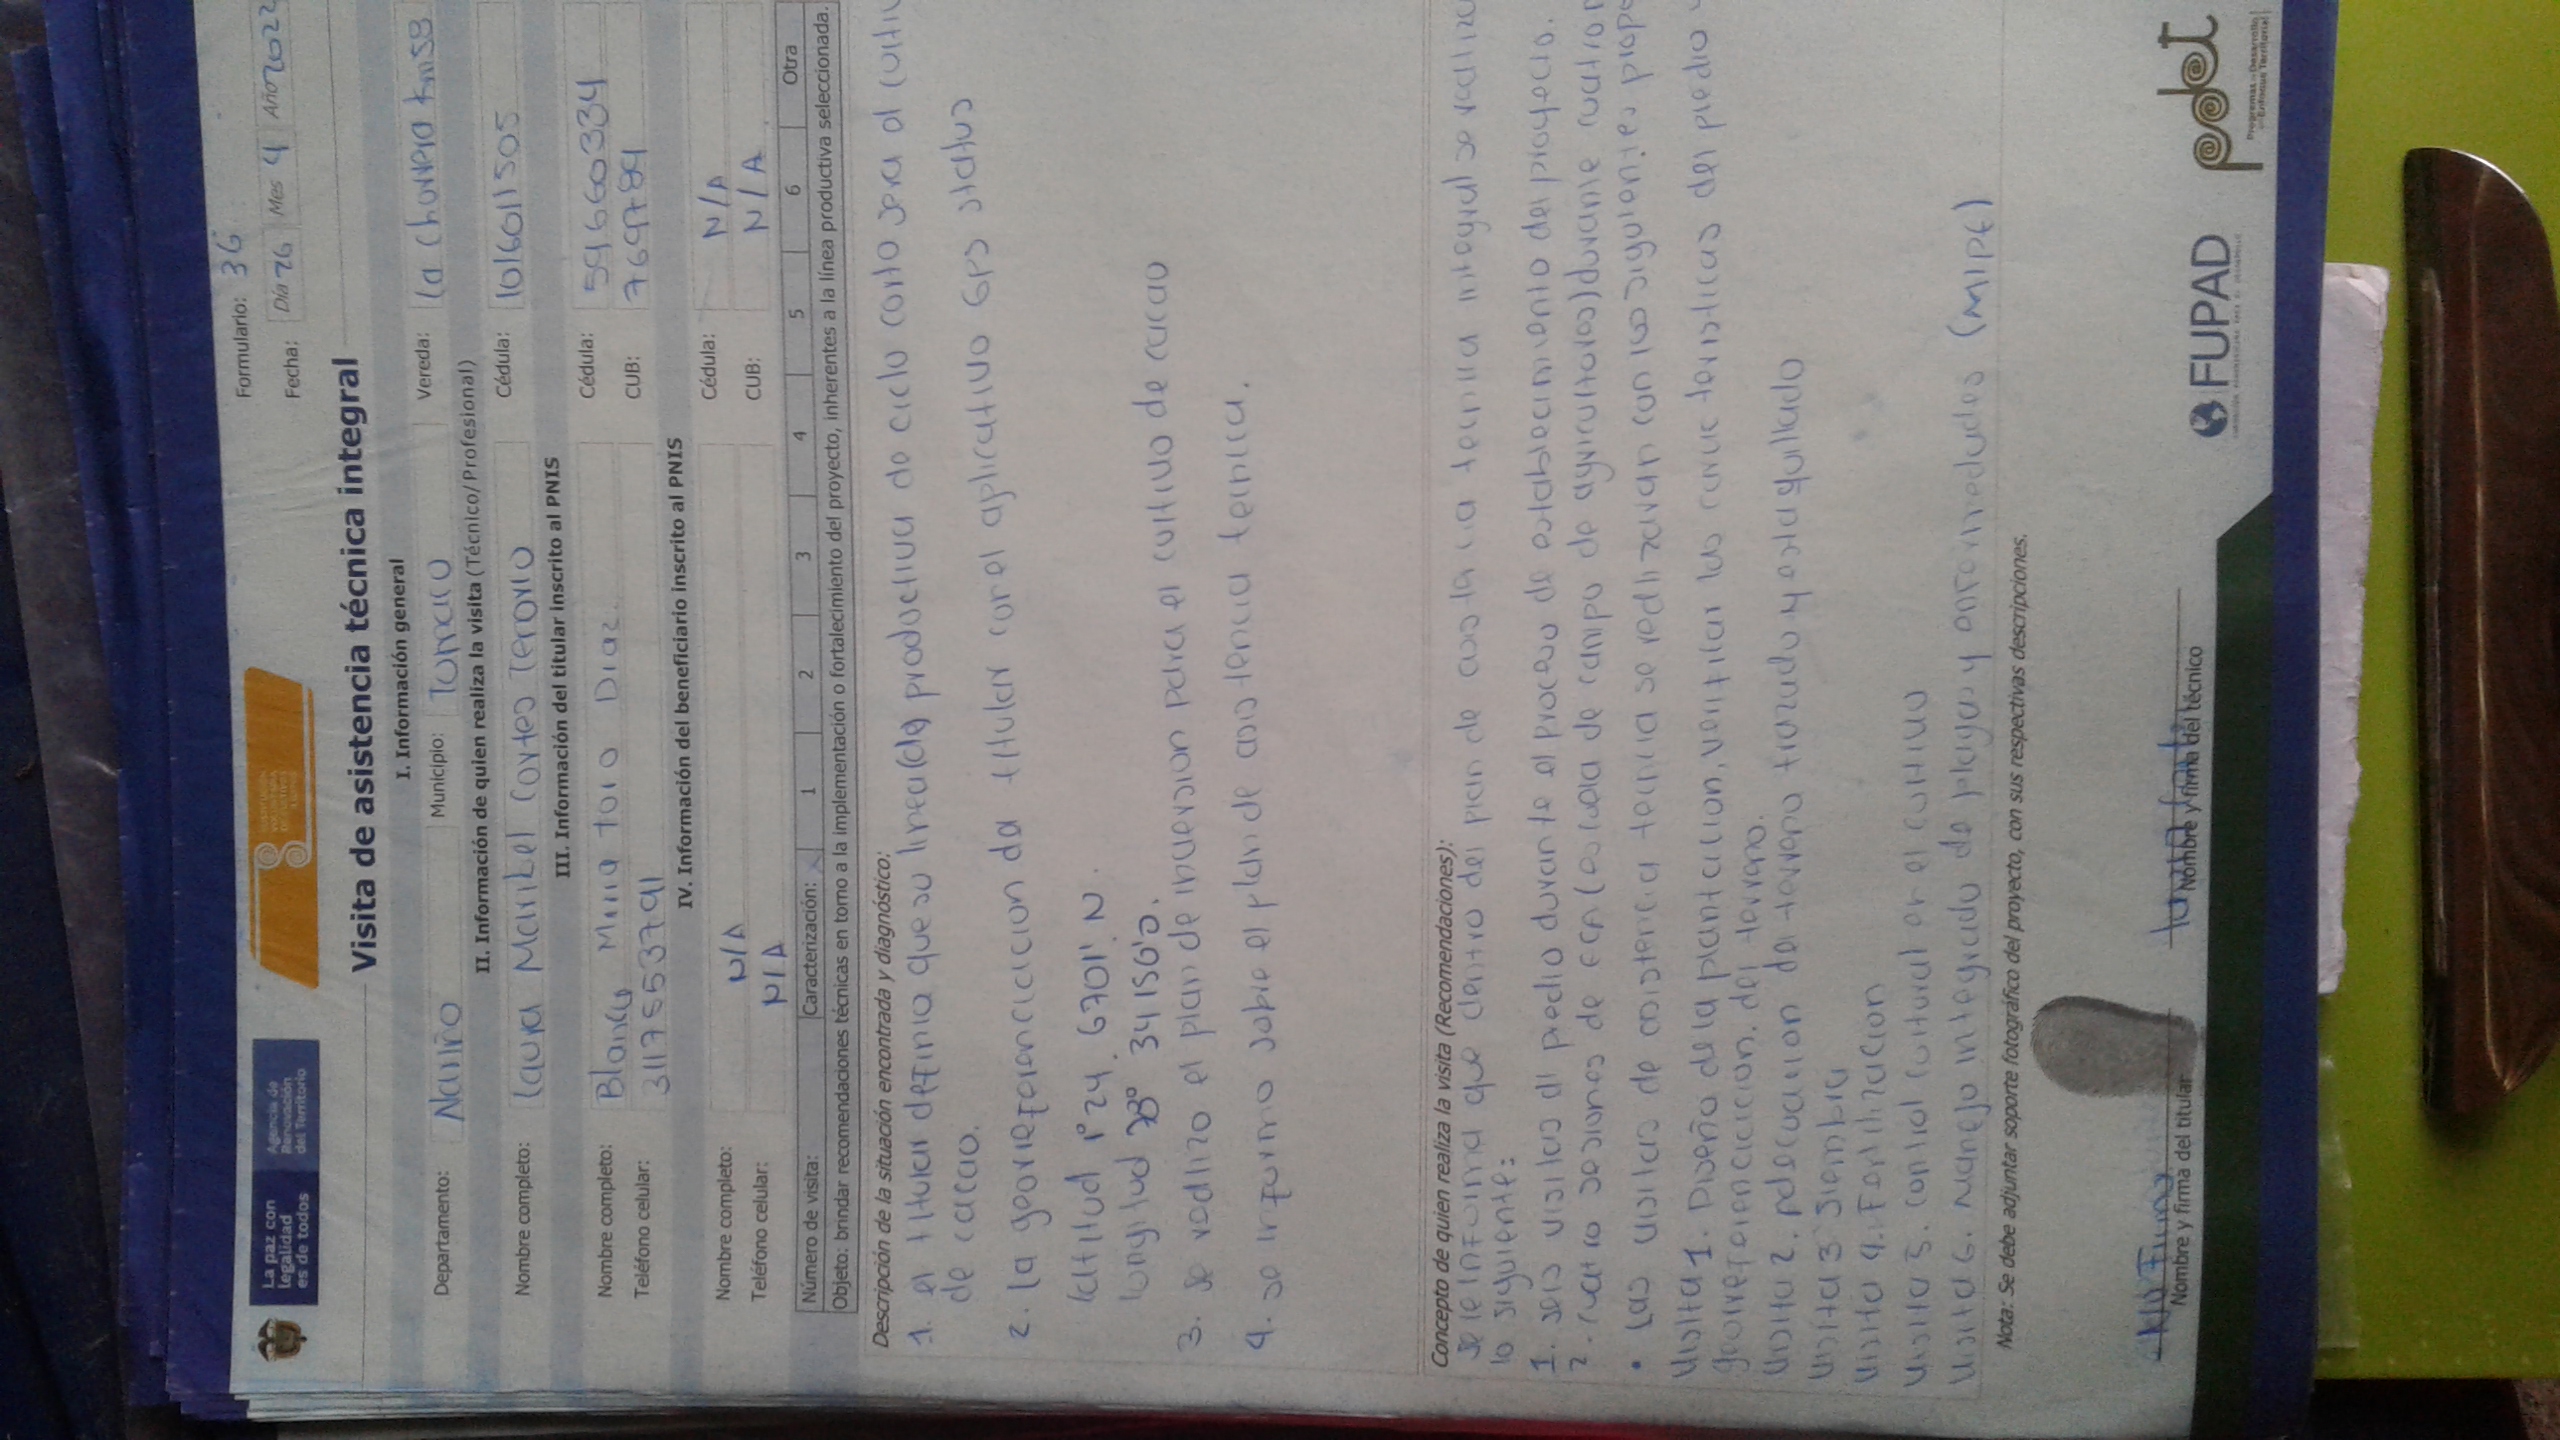 Formulario: 36
La paz con
legalidad
es de todos
Agencia de
Renovación
del Territorio
Fecha: Día 26 Mes 4 Año 2022
Visita de asistencia técnica integral
I. Información general
Departamento: Nariño Municipio: Tumaco Vereda: la chorrera km 58
II. Información de quien realiza la visita (Técnico/Profesional)
Nombre completo: Laura Maribel Cortes Tenorio Cédula: 1016011505
III. Información del titular inscrito al PNIS
Nombre completo: Blanca Miria Toro Diaz. Cédula: 59660334
Teléfono celular: 3117553791 CUB: 769784
IV. Información del beneficiario inscrito al PNIS
Nombre completo: N/A Cédula: N/A
Teléfono celular: N/A CUB: N/A
Número de visita: Caracterización: 1 2 3 4 5 6 Otra
Objeto: brindar recomendaciones técnicas en torno a la implementación o fortalecimiento del proyecto, inherentes a la línea productiva seleccionada.
Descripción de la situación encontrada y diagnóstico:
1. el titular definio que su linea(de) productiva de ciclo corto sera el
de cacao.
2. la georreferenciacion da titular con el aplicativo GPS status
latitud 1° 24. 6701' N.
longitud 78° 34 156'O.
3. se realizo el plan de inversion para el cultivo de cacao
4. se informo sobre el plan de asistencia tecnica.
Concepto de quien realiza la visita (Recomendaciones):
se le informa que dentro del plan de asistencia tecnica integral se
lo siguiente:
1. seis visitas al predio durante el proceso de establecimiento del proyecto.
2. cuatro sesiones de ECA (escuela de campo de agricultores) durante cuatro
• Las visitas de asistencia tecnica se realizaran con los siguientes
visita 1. Diseño de la plantacion, verificar las caracteristicas del predio
georreferenciacion. del terreno.
visita 2. Adecuacion del terreno trazado y estaquillado
visita 3. Siembra
visita 4. Fertilizacion
visita 5. control cultural en el cultivo
visita 6. Manejo integrado de plagas y enfermedades (MIPE)
Nota: Se debe adjuntar soporte fotográfico del proyecto, con sus respectivas descripciones.
Nombre y firma del titular
Nombre y firma del técnico
FUPAD
pdet
Programas de Desarrollo
con Enfoque Territorial